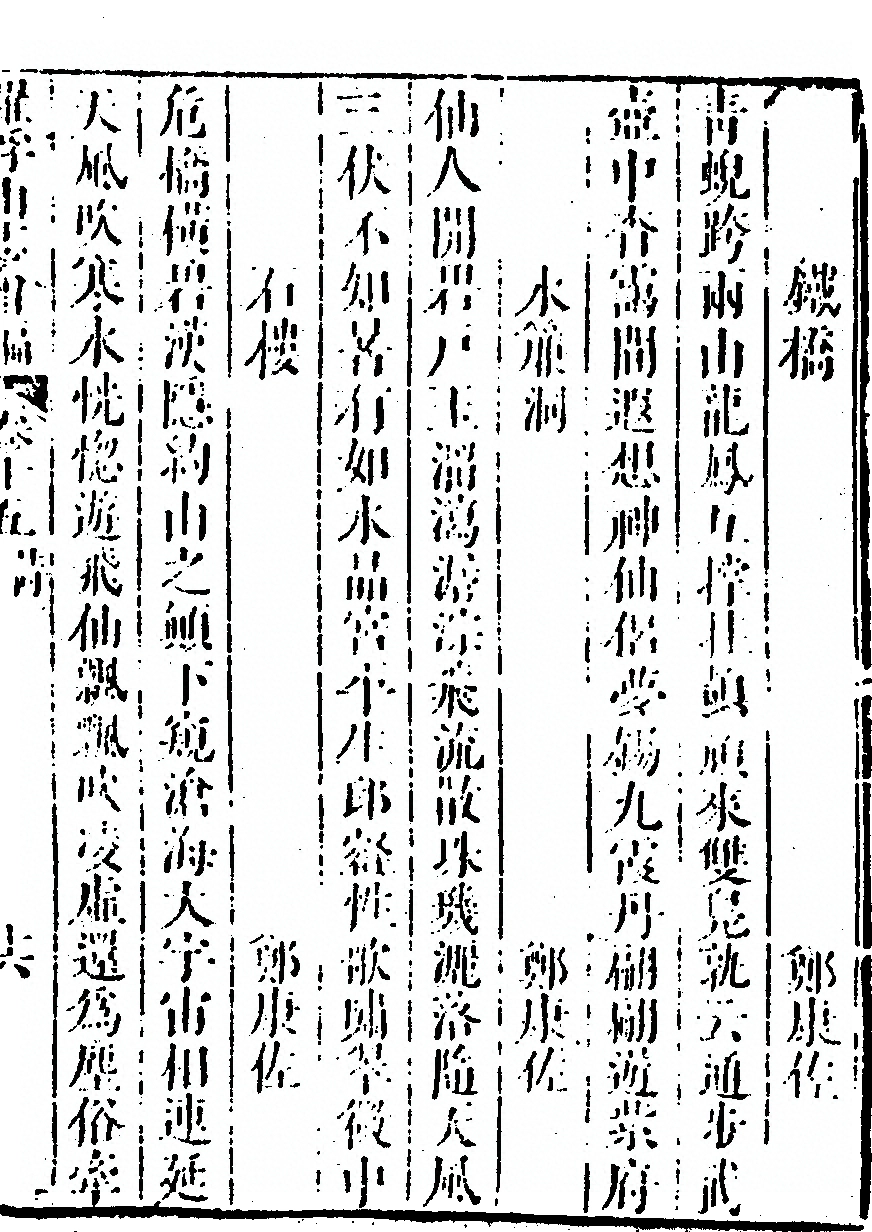 鐵橋 鄭康佐
青蜺跨兩山龍鳳互撑拄來雙鳧孰云通步武
壺中杳靄間遐想神仙侶夢錫九霞丹翩翩遊紫府
水簾洞 鄭康佐
仙人開碧戶玉溜瀉淙飛流散珠璣灑落隨天風
三伏不知暑有如水晶宮平生邱壑性歌嘯翠微中
石樓 鄭康佐
危橋橫碧漢隱約山之顛下窺滄海大宇宙相連延
天風吹寒水恍惚遊飛仙飄飄吹凌虛還為塵俗牽
羅浮山志會編 卷十五 詩